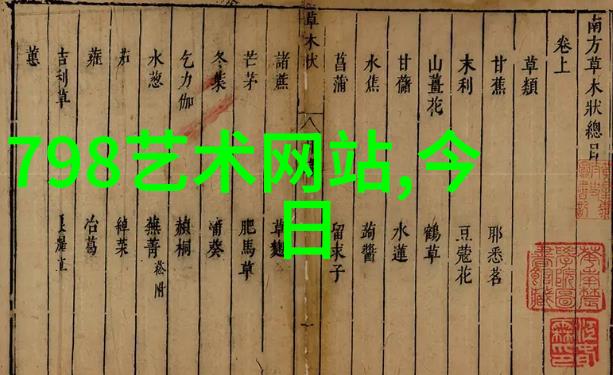 798艺术网站,今
日
南方草木狀總目
卷上
草類
甘蕉 耶悉茗
末利 豆蔻花
山薑花 鶴草
甘藷 水蓮
水蕉 蒟醬
菖蒲 留求子
草木狀
諸蔗 草麴
芒茅 肥馬草
冬葉 蒲葵
乞力伽 赬桐
水葱 蕪菁 菘附
茄 綽菜
蕹 冶葛
吉利草
蕙